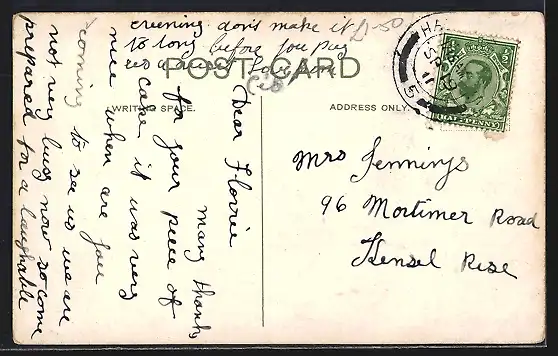 POST CARD
WRITTEN SPACE.
ADDRESS ONLY.
HALF PENNY
Dear Florrie
many thanks
for your piece of
cake it was very
nice when are you
coming to see us we are
not very busy now so come
prepared for a laughable
evening don't make it
to long before you pay
us a visit Love from
Mrs Jennings
96 Mortimer Road
Kensel Rise